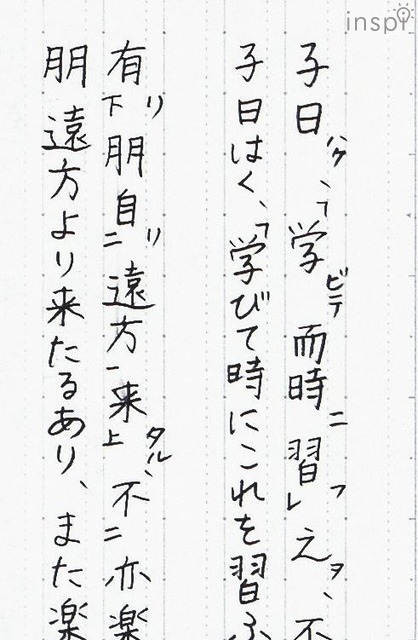 inspi
子曰ハク、「学ビテ而時ニ習フレ之ヲ、不
子曰はく、「学びて時にこれを習ふ
有リ下朋自リ二遠方一来タル上、不二亦楽
朋遠方より来たるあり、また楽